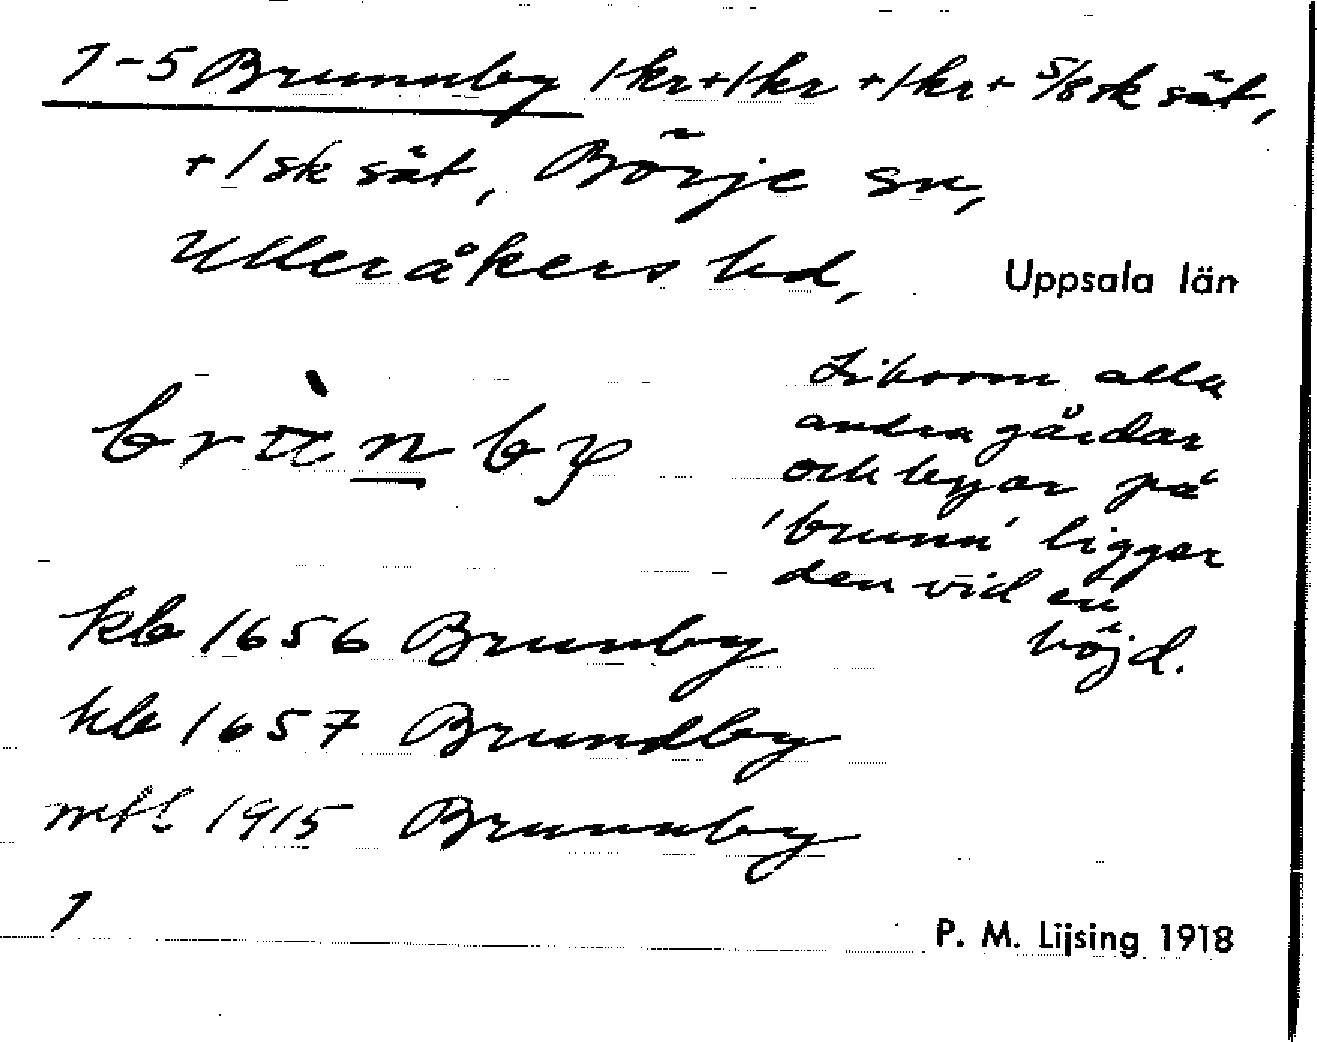 1-5 Brunnby 1 kr + 1 kr + 1 kr + 5/8 sk sät,
+ 1 sk sät, Börje sn,
Ulleråkers hd,
Uppsala län
brùnby
Liksom alla
andra gårdar
och byar på
'brunn' ligger
den vid en
höjd.
kb 1656 Brunby
kb 1657 Brundby
mtl 1915 Brunnby
1
P. M. Lijsing 1918